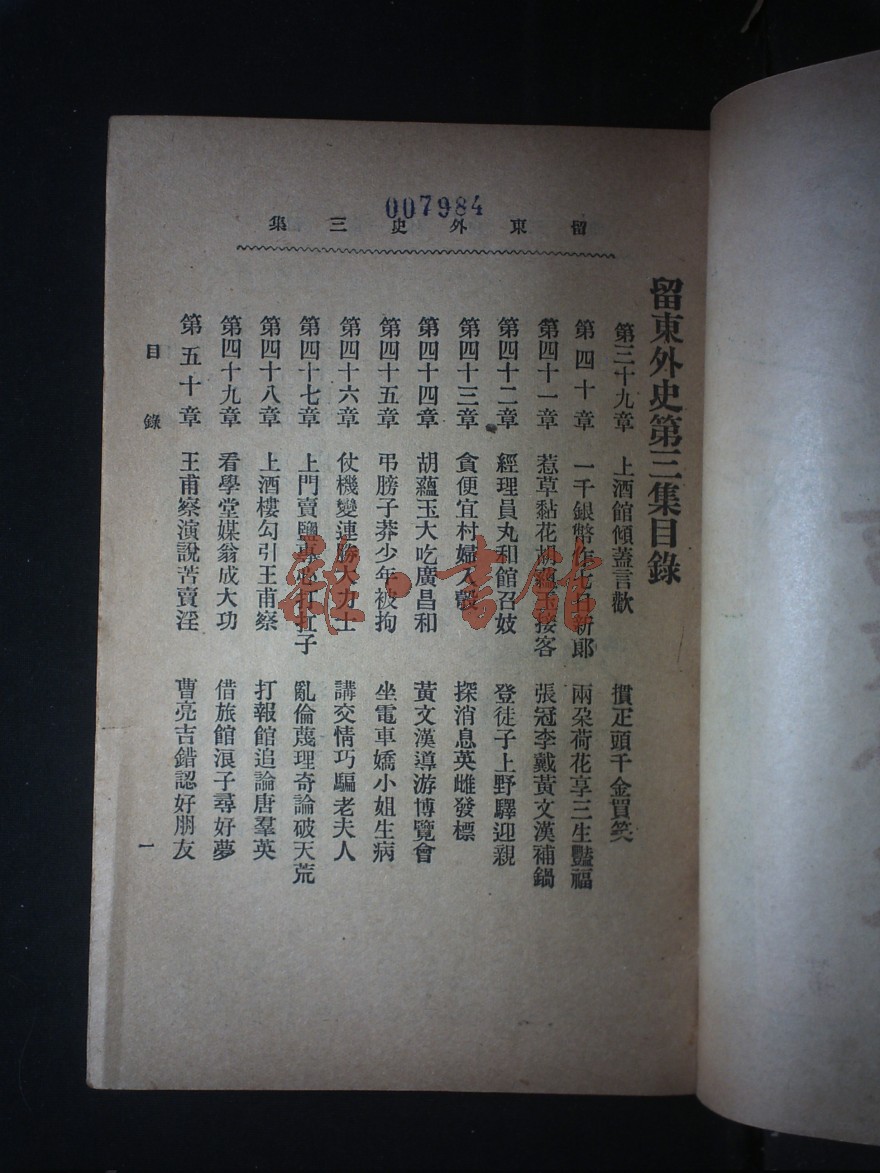 007984
留東外史三集
留東外史第三集目錄
第三十九章 上酒館傾蓋言歡 摜疋頭千金買笑
第四十章 一千銀幣作七日新郎 兩朵荷花享三生豔福
第四十一章 惹草黏花胡蘊玉接客 張冠李戴黃文漢補鍋
第四十二章 經理員丸和館召妓 登徒子上野驛迎親
第四十三章 貪便宜村婦入彀 探消息英雌發標
第四十四章 胡蘊玉大吃廣昌和 黃文漢導游博覽會
第四十五章 弔膀子莽少年被拘 坐電車嬌小姐生病
第四十六章 仗機變連勝大力士 講交情巧騙老夫人
第四十七章 上門賣鹽專心打扛子 亂倫蔑理奇論破天荒
第四十八章 上酒樓勾引王甫察 打報館追論唐羣英
第四十九章 看學堂媒翁成大功 借旅館浪子尋好夢
第五十章 王甫察演說苦賣淫 曹亮吉錯認好朋友
目錄
一
雜·書館